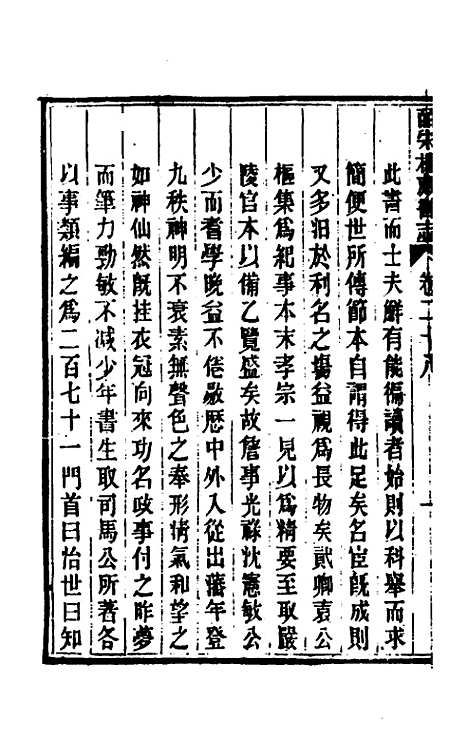 皕宋樓藏書志 卷二十八 一
此書而士夫鮮有能徧讀者始則以科舉而求
簡便世所傳節本自謂得此足矣名宦旣成則
又多汨於利名之塲益視爲長物矣貳卿袁公
樞集爲紀事本末孝宗一見以爲精要至取嚴
陵官本以備乙覽盛矣故詹事光祿沈憲敏公
少而耆學晚益不倦敭歷中外入從出藩年登
九秩神明不衰素無聲色之奉形淸氣和望之
如神仙然旣挂衣冠向來功名政事付之昨夢
而筆力勁敏不减少年書生取司馬公所著各
以事類編之爲二百七十一門首曰怡世曰知